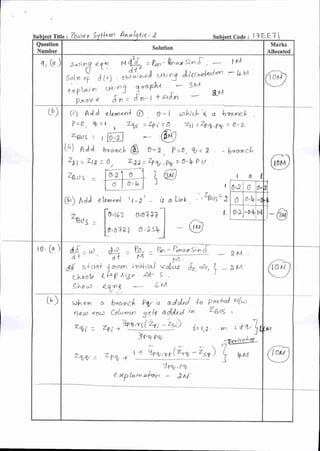 Subject Title : Power System Analysis - 2 Subject Code : 17EE71
Question Number
Solution
Marks Allocated
9. (a) Swing eqn M d²δ/dt² = Pm - Pmax Sinδ. — 1M
Soln of δ(t) - obtained using discretisation — 4M
explain using graphs — 3M
Prove δn = δn-1 + Δδn — 2M
10M
(b) (i) Add element ① 0-1 which is a branch.
P=0, q=1, Zqi = Zpi = 0, Z11 = Zpq,pq = 0.2
ZBUS = 1 [0.2] — 2M
(ii) Add branch ② 0-2, P=0, q=2 . - branch
Z21 = Z12 = 0, Z22 = Zpq,pq = 0.4 PU
10M
ZBUS = 0.2 0 0 0.4 3M
(iii) Add element '1-2' - is a Link.
ZBUS =
1 2 l
1 0.2 0
2 0
l 0.2
ZBUS = 0.163 0.0727
0.0727 0.254
10. (a) dδ/dt = ω, dω/dt = Pa/M = Pm - Pmax Sinδ / M — 2M
start from initial value δ0, ω0, } - 2M
choose step size Δt S.
Show eqns — 6M
10M
(b) When a branch Pq is added to partial n/w
new row column gets added in ZBUS.
Zqi = Zpi + ypq,rs (Zri - Zsi) / ypq,pq i=1,2.. m i≠q } 4M
Zqq = Zpq + 1 + ypq,rs (Zrq - Zsq) / ypq,pq } 4M
10M
explanation - 2M